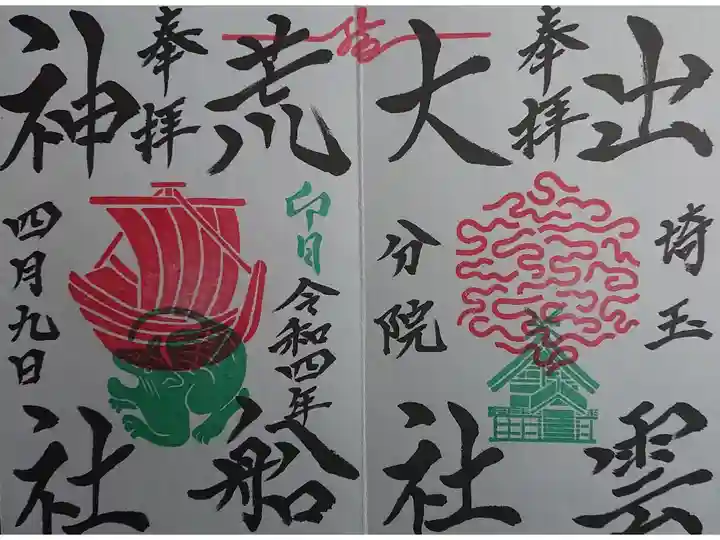 出雲
奉拝
埼玉
大社
分院
荒船
卯月
令和四年
奉拝
神社
四月九日